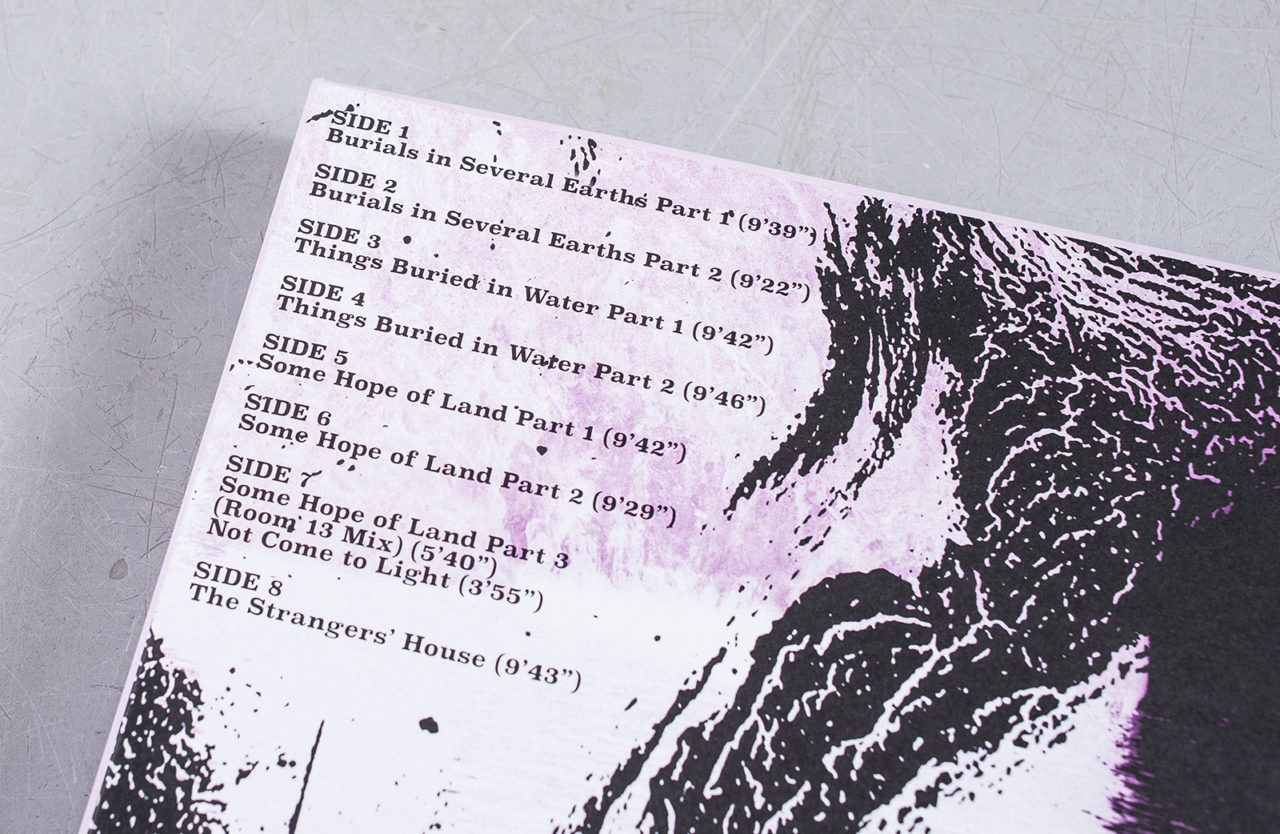 SIDE 1
Burials in Several Earths Part 1 (9’39”)
SIDE 2
Burials in Several Earths Part 2 (9’22”)
SIDE 3
Things Buried in Water Part 1 (9’42”)
SIDE 4
Things Buried in Water Part 2 (9’46”)
SIDE 5
Some Hope of Land Part 1 (9’42”)
SIDE 6
Some Hope of Land Part 2 (9’29”)
SIDE 7
Some Hope of Land Part 3
(Room 13 Mix) (5’40”)
Not Come to Light (3’55”)
SIDE 8
The Strangers’ House (9’43”)